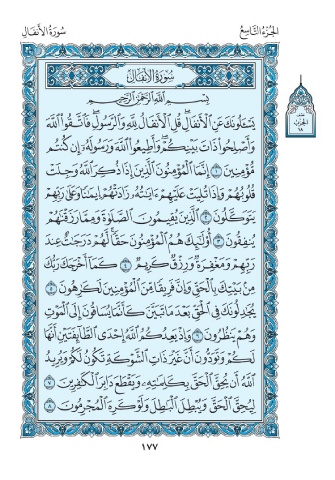 الجزء التاسع
سورة الأنفال
سورة الأنفال
بسم الله الرحمن الرحيم
يسـٔلونك عن الأنفال قل الأنفال لله والرسول فاتقوا الله
وأصلحوا ذات بينكم وأطيعوا الله ورسوله إن كنتم
مؤمنين ١ إنما المؤمنون الذين إذا ذكر الله وجلت
قلوبهم وإذا تليت عليهم ءايته زادتهم إيمنا وعلى ربهم
يتوكلون ٢ الذين يقيمون الصلوة ومما رزقنهم
ينفقون ٣ أولئك هم المؤمنون حقا لهم درجت عند
ربهم ومغفرة ورزق كريم ٤ كما أخرجك ربك
من بيتك بالحق وإن فريقا من المؤمنين لكرهون ٥
يجدلونك في الحق بعد ما تبين كأنما يساقون إلى الموت
وهم ينظرون ٦ وإذ يعدكم الله إحدى الطائفتين أنها
لكم وتودون أن غير ذات الشوكة تكون لكم ويريد
الله أن يحق الحق بكلمته ويقطع دابر الكفرين ٧
ليحق الحق ويبطل البطل ولو كره المجرمون ٨
الجزء
١٨
١٧٧